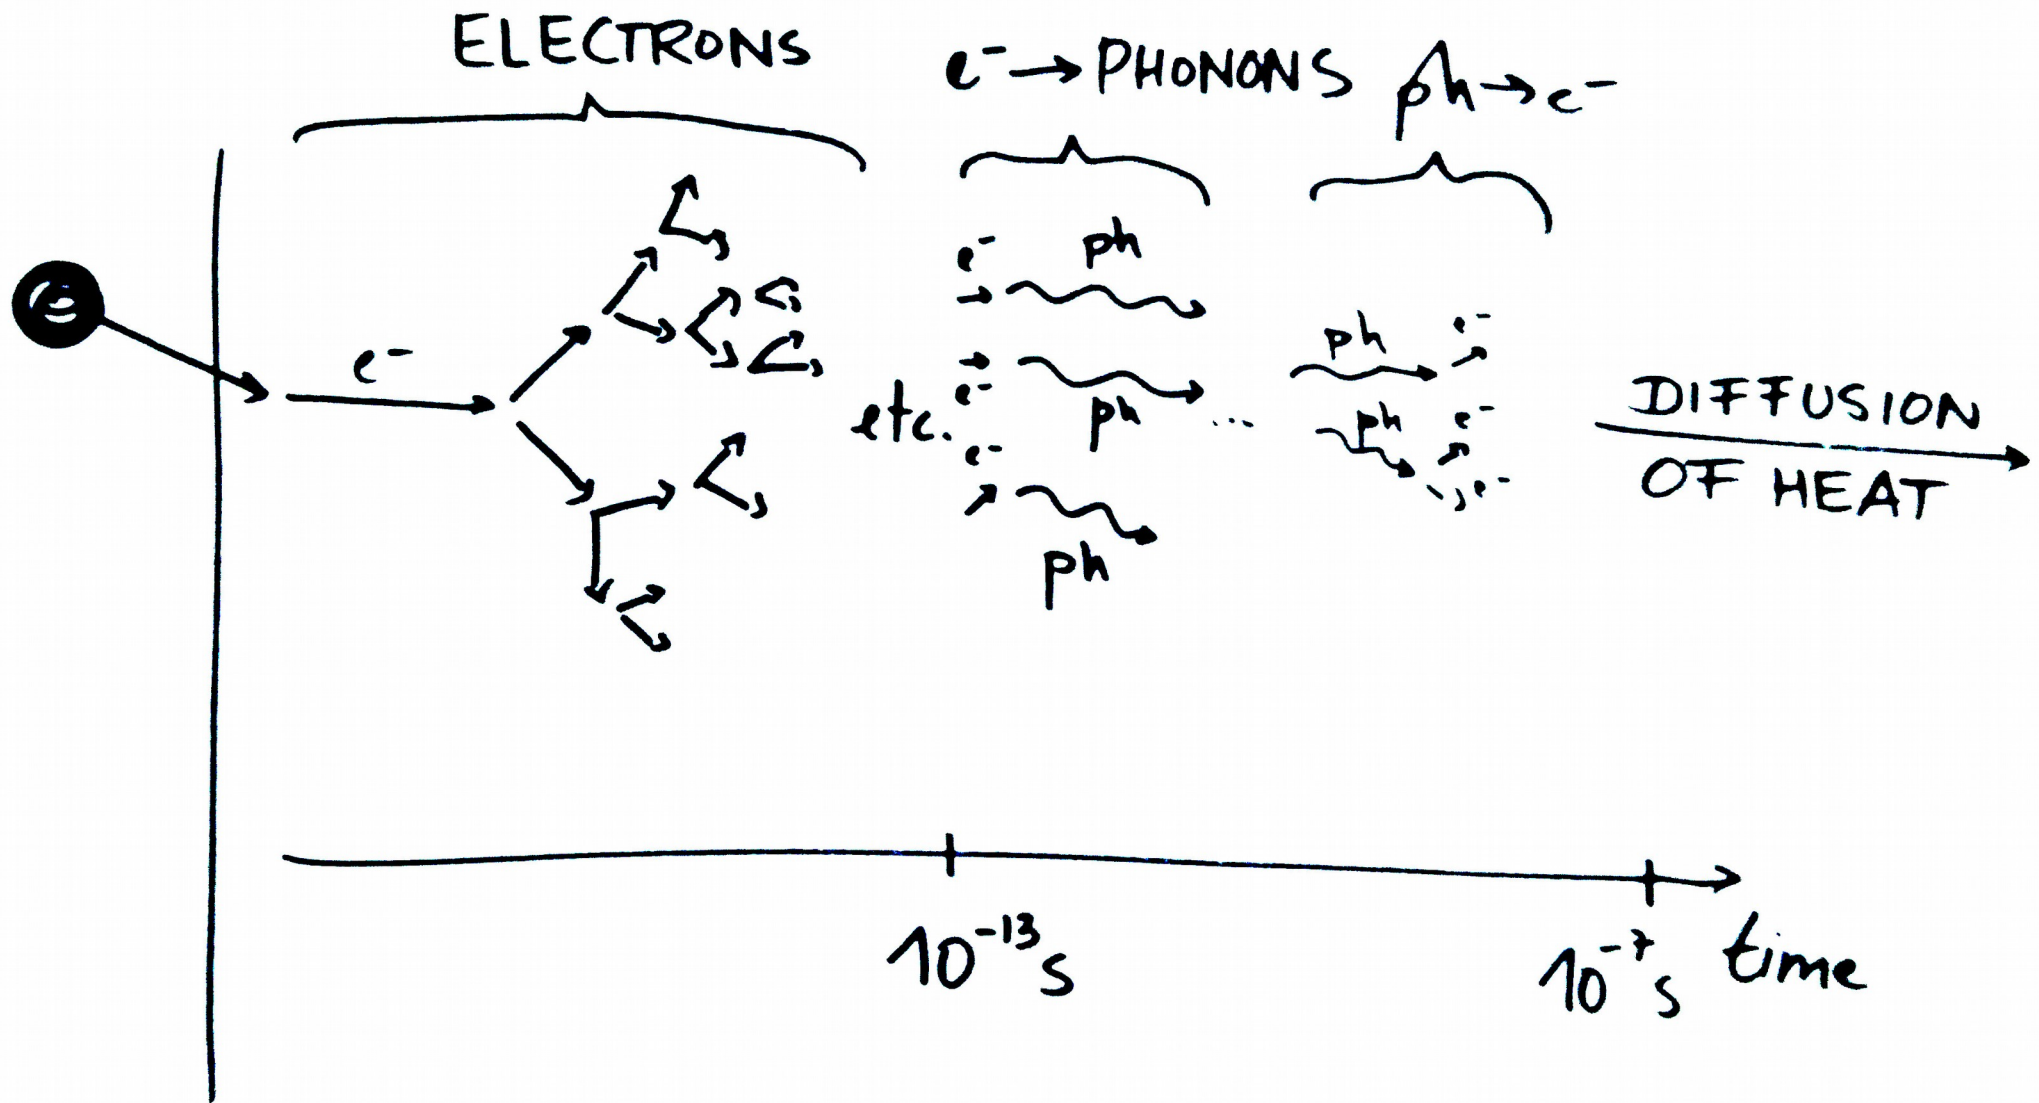 ELECTRONS
e⁻→PHONONS
ph→e⁻
e⁻
etc.
e⁻
ph
e⁻
ph
e⁻
ph
...
ph
e⁻
ph
e⁻
e⁻
DIFFUSION
OF HEAT
10⁻¹³s
10⁻⁷s
time